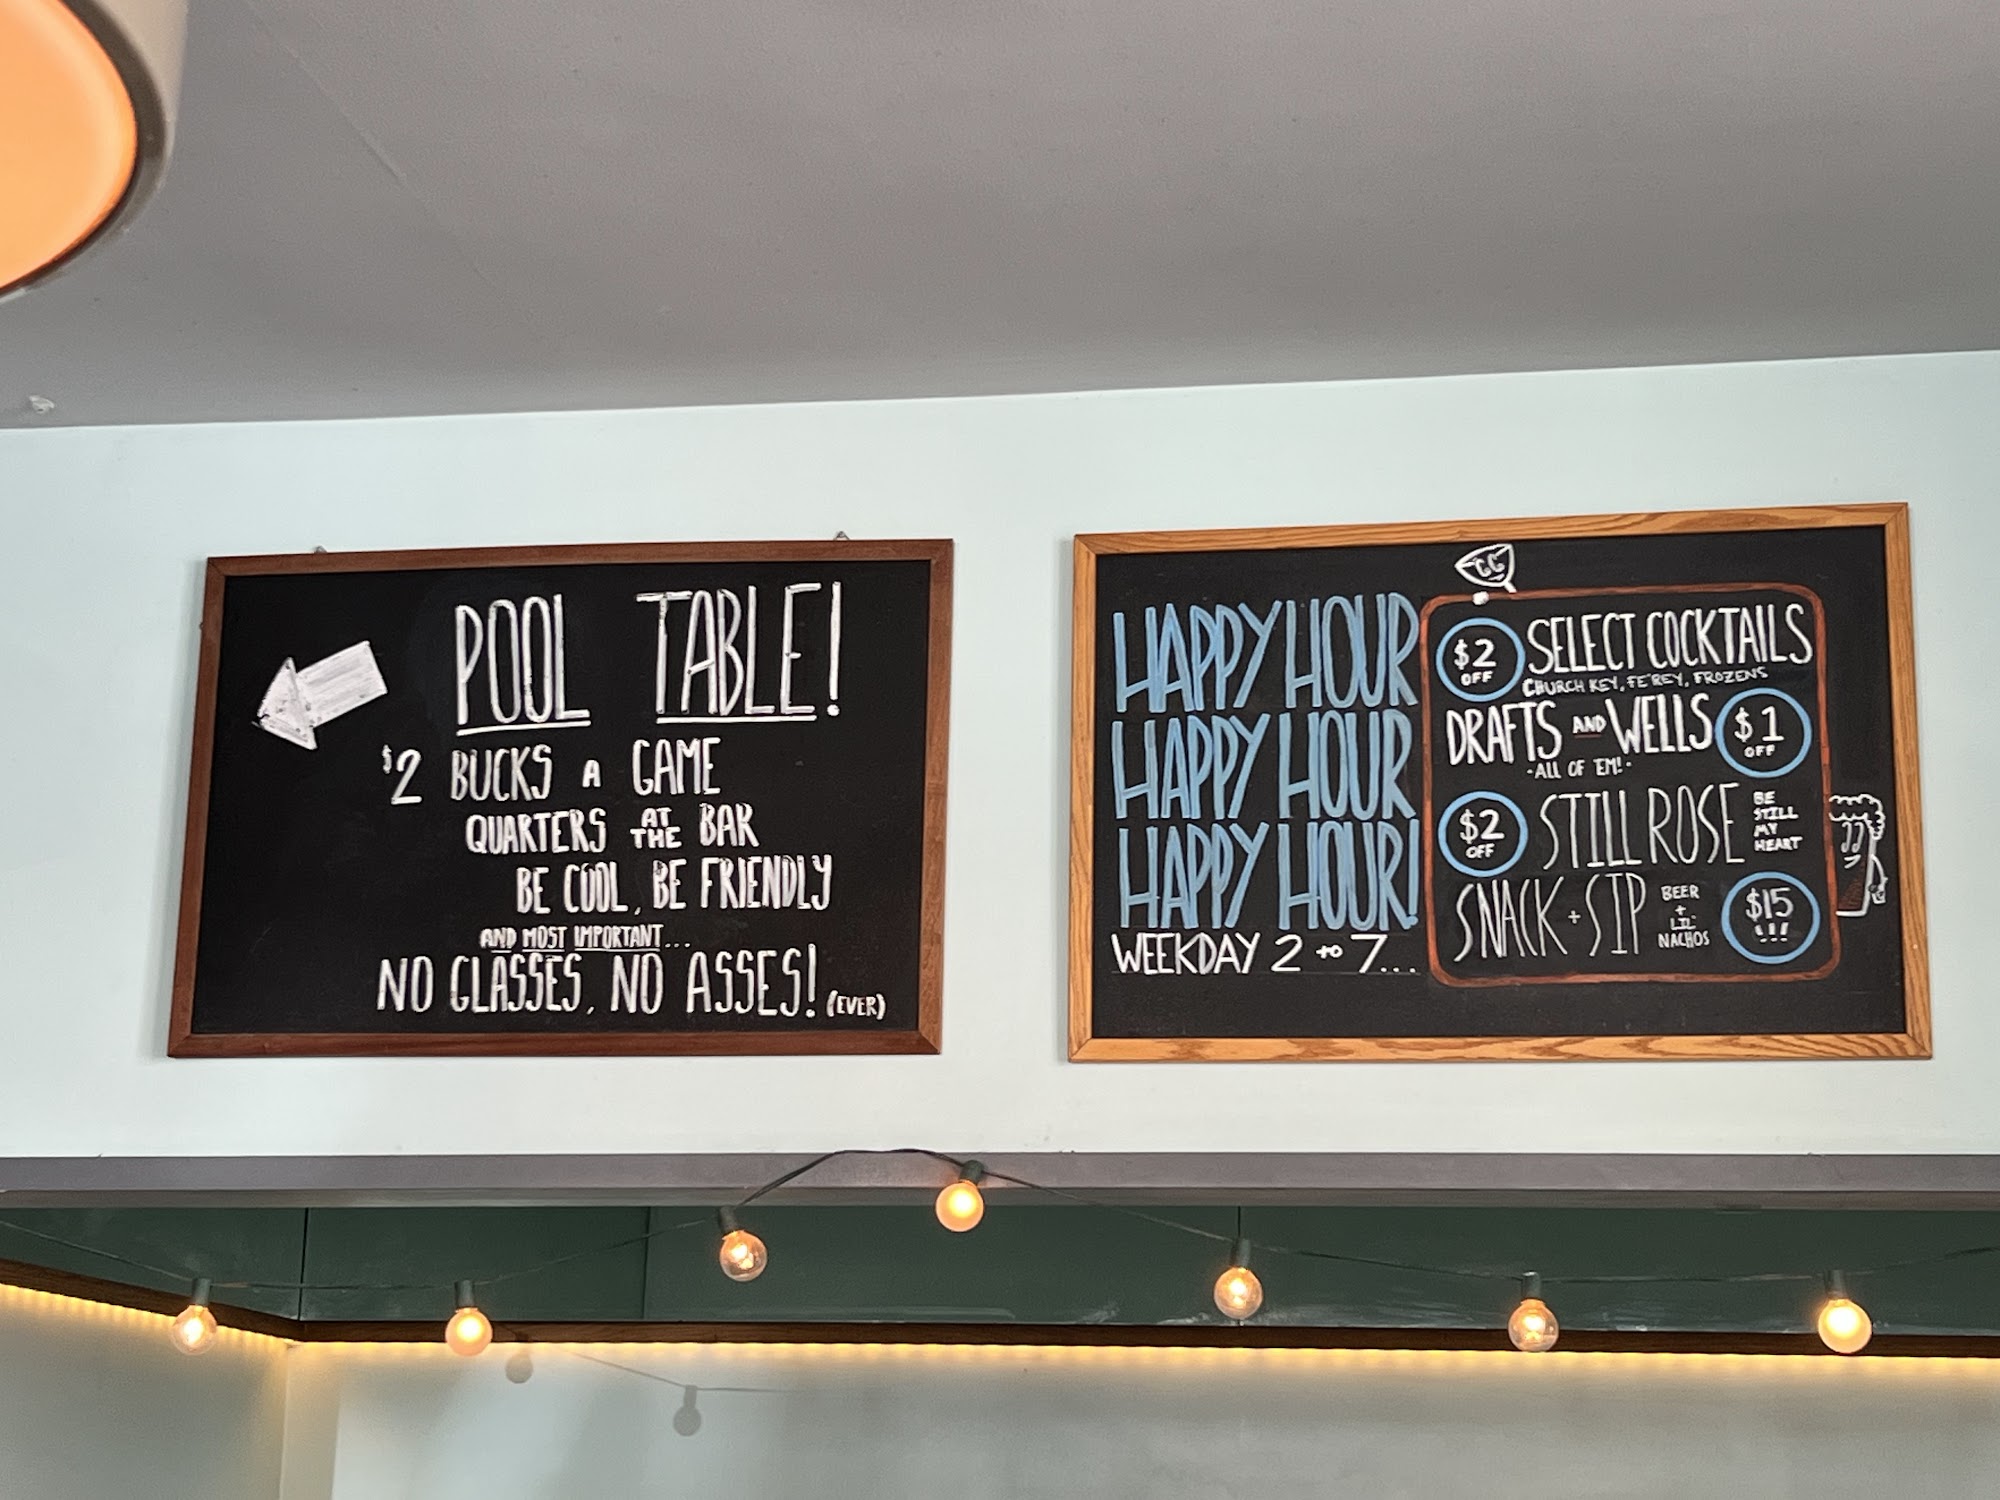 POOL TABLE!
$2 BUCKS A GAME
QUARTERS AT THE BAR
BE COOL, BE FRIENDLY
AND MOST IMPORTANT...
NO GLASSES, NO ASSES! (EVER)
CC
HAPPY HOUR
HAPPY HOUR
HAPPY HOUR!
WEEKDAY 2 TO 7...
$2 OFF SELECT COCKTAILS
CHURCH KEY, FE'REY, FROZENS
DRAFTS AND WELLS $1 OFF
-ALL OF 'EM!-
$2 OFF STILL ROSE BE STILL MY HEART
SNACK + SIP BEER + LIL' NACHOS $15 !!!